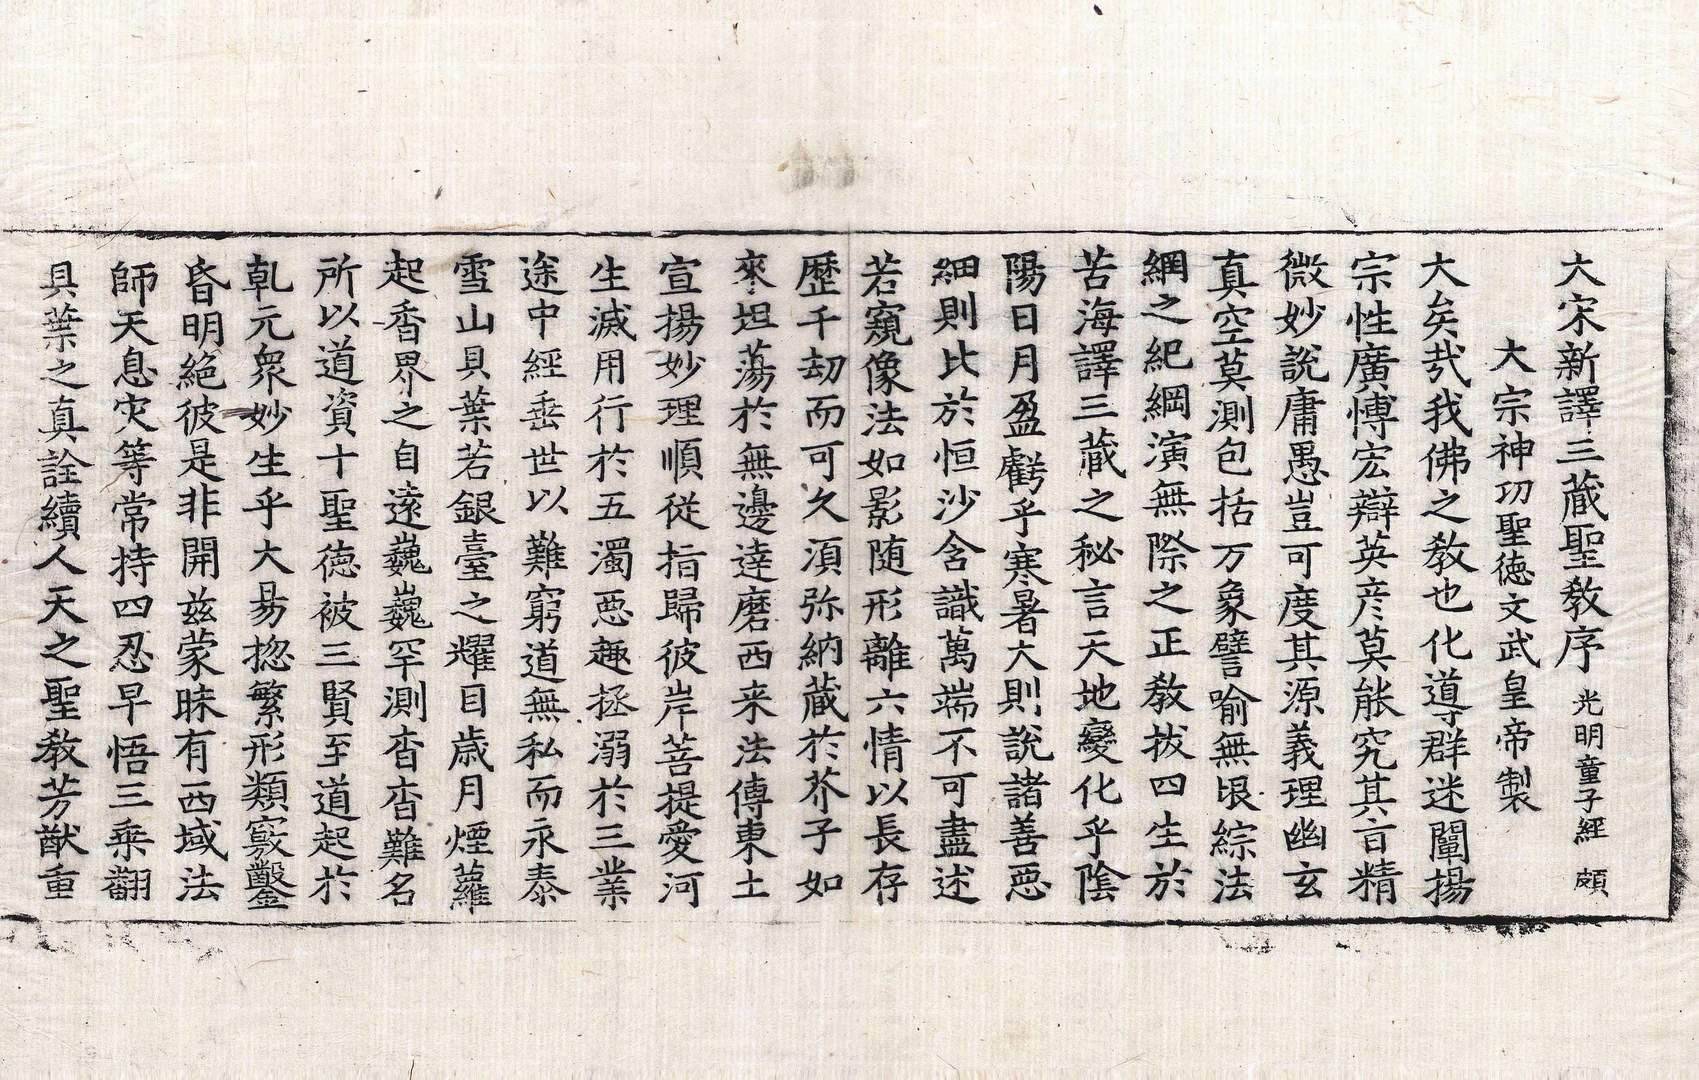 大宋新譯三藏聖教序 光明童子經 頗
大宗神功聖德文武皇帝製
大矣哉我佛之教也化導群迷闡揚
宗性廣博宏辯英彦莫能究其旨精
微妙說庸愚豈可度其源義理幽玄
真空莫測包括万象譬喻無垠綜法
網之紀綱演無際之正教拔四生於
苦海譯三藏之秘言天地變化乎陰
陽日月盈虧乎寒暑大則說諸善惡
細則比於恒沙含識萬端不可盡述
若窺像法如影随形離六情以長存
歷千劫而可久須弥納藏於芥子如
來坦蕩於無邊達磨西来法傳東土
宣揚妙理順從指歸彼岸菩提愛河
生滅用行於五濁惡趣拯溺於三業
途中經垂世以難窮道無私而永泰
雪山貝葉若銀臺之耀目歳月煙蘿
起香界之自遠巍巍罕測杳杳難名
所以道資十聖德被三賢至道起於
乹元衆妙生乎大易惣繁形類竅鑿
昏明絕彼是非開兹蒙昧有西域法
師天息灾等常持四忍早悟三乘翻
貝葉之真詮續人天之聖教芳猷重